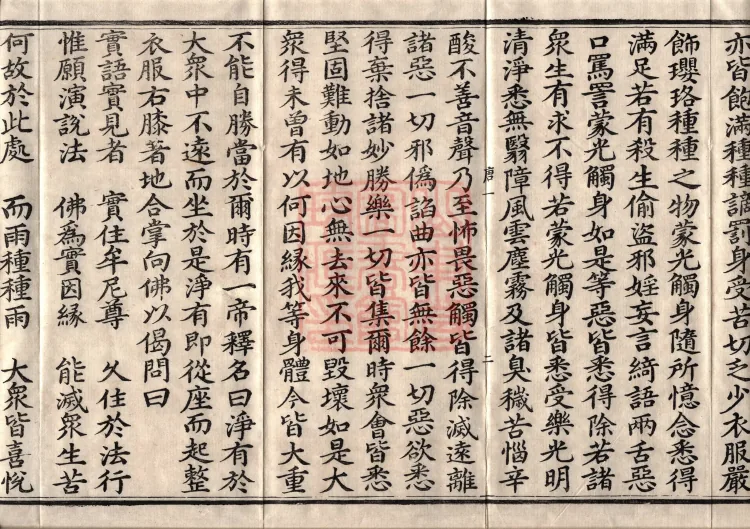 亦皆飽滿種種謫罰身受苦切乏少衣服嚴
飾瓔珞種種之物蒙光觸身隨所憶念悉得
滿足若有殺生偷盜邪婬妄言綺語兩舌惡
口罵詈蒙光觸身如是等惡皆悉得除若諸
衆生有求不得若蒙光觸身皆悉受樂光明
清淨悉無翳障風雲塵霧及諸臭穢苦惱辛
唐一 二
酸不善音聲乃至怖畏惡觸皆得除滅遠離
諸惡一切邪僞諂曲亦皆無餘一切惡欲悉
得棄捨諸妙勝樂一切皆集爾時衆會皆悉
堅固難動如地心無去來不可毀壞如是大
衆得未曾有以何因緣我等身體今皆大重
不能自勝當於爾時有一帝釋名曰淨有於
大衆中不遠而坐於是淨有即從座而起整
衣服右膝著地合掌向佛以偈問曰
實語實見者 實住牟尼尊 久住於法行
惟願演説法 佛爲實因緣 能滅衆生苦
何故於此處 而雨種種雨 大衆皆喜悅